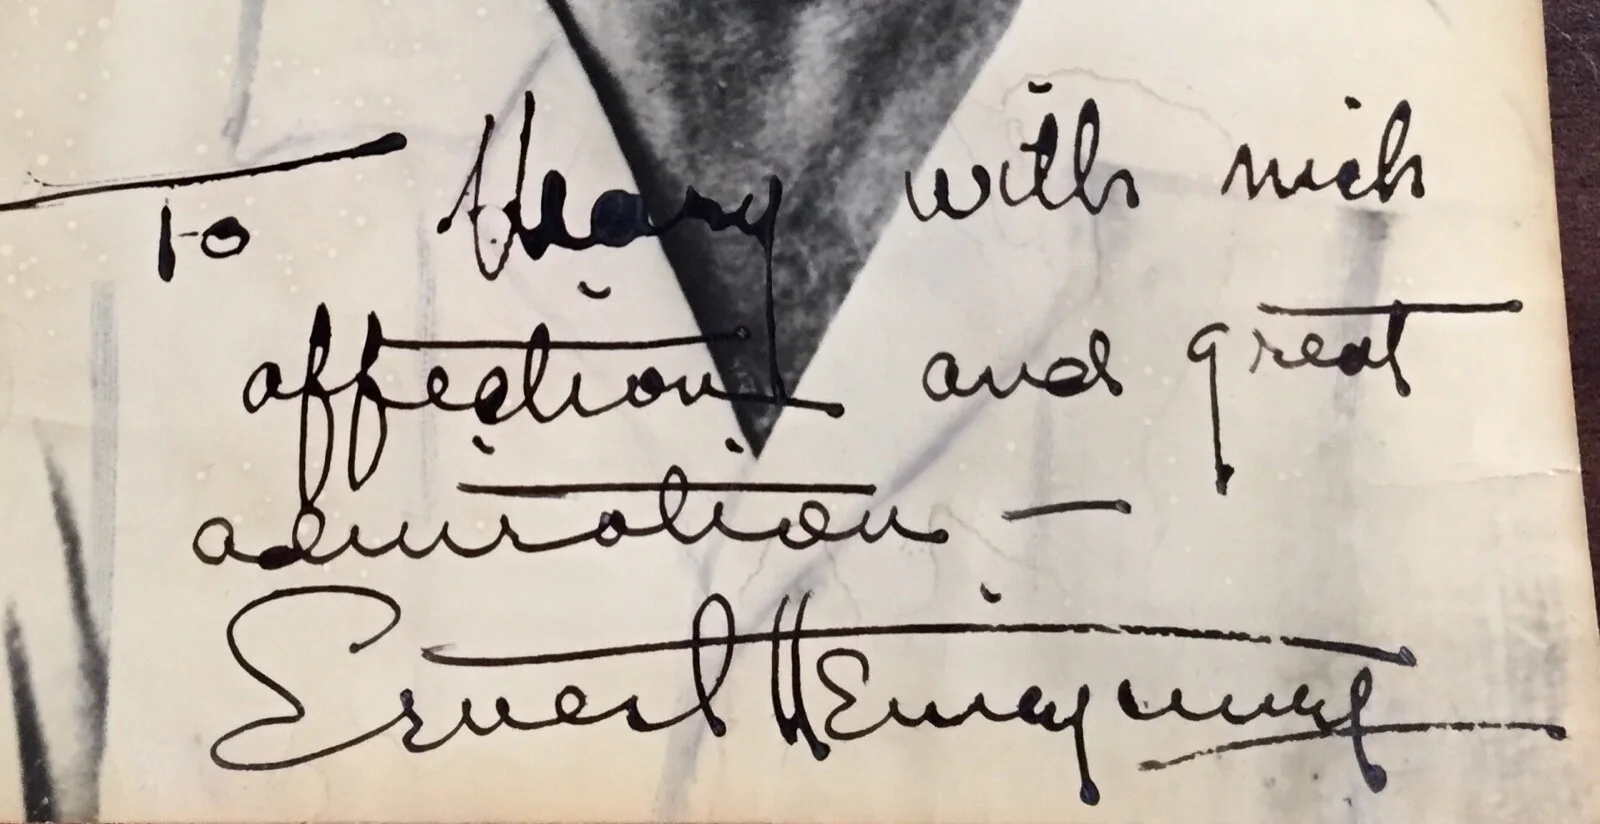 To with much
affection and great
admiration —
Ernest Hemingway